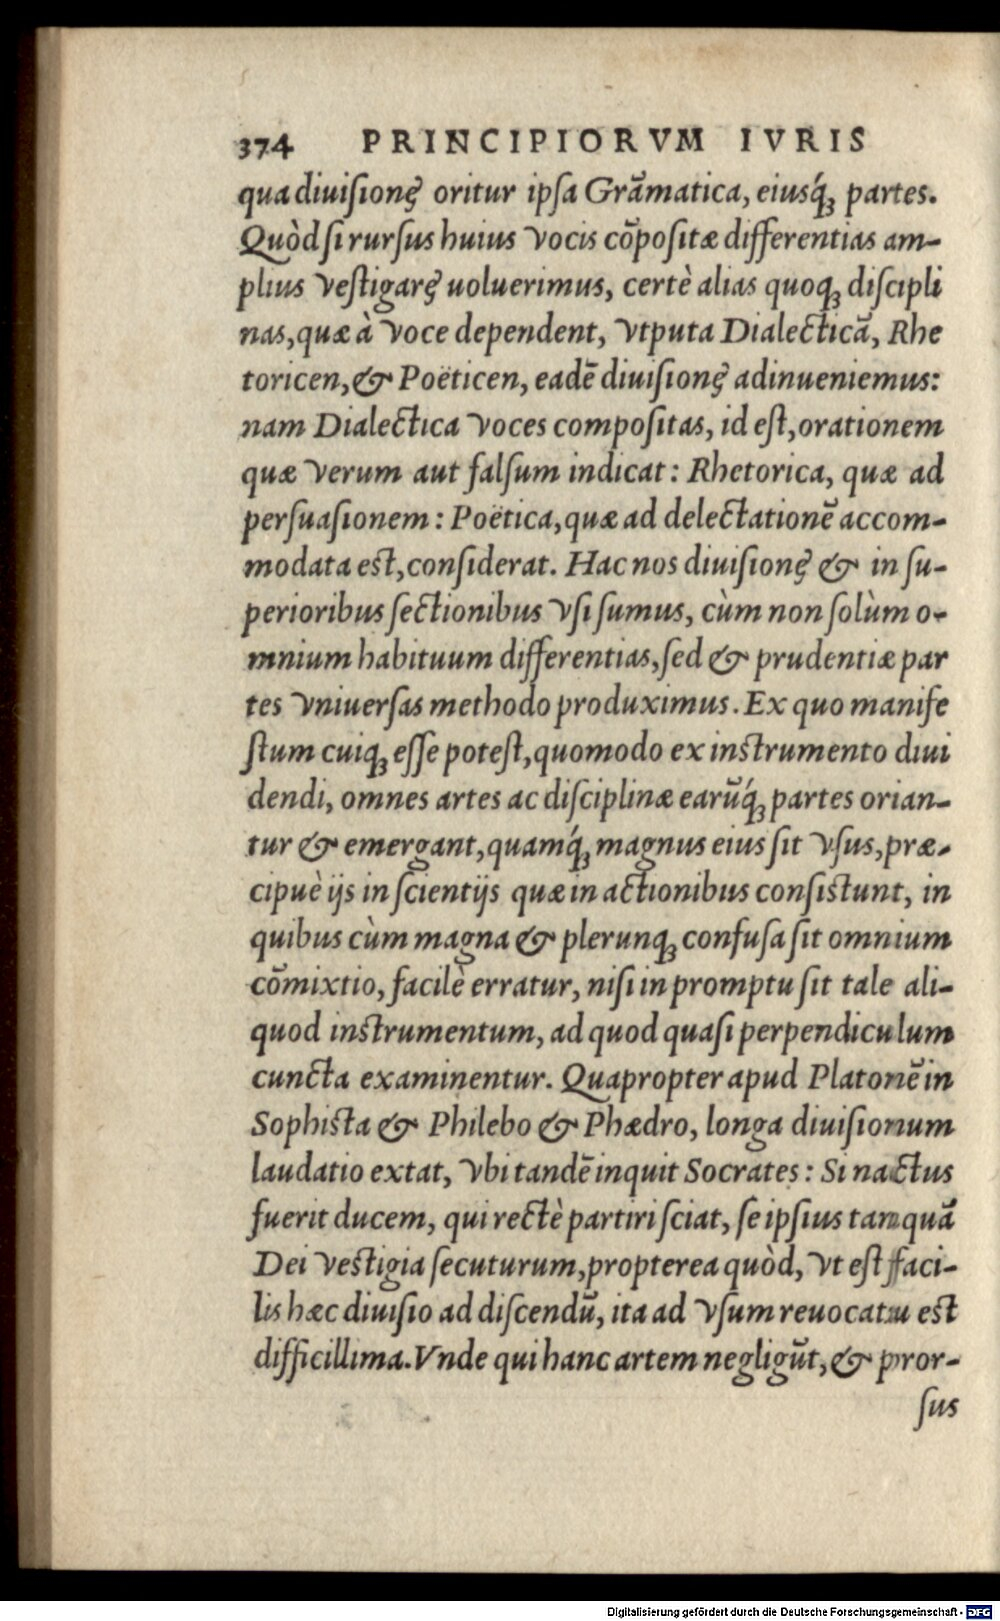 374 PRINCIPIORVM IVRIS
qua diuiſionę oritur ipſa Grāmatica, eiusq́ꝫ partes.
Quòd ſi rurſus huius vocis cōpoſitæ differentias am-
plius veſtigarę uoluerimus, certè alias quoqꝫ diſcipli
nas, quæ à voce dependent, vtputa Dialecticā, Rhe
toricen, & Poëticen, eadē diuiſionę adinueniemus:
nam Dialectica voces compoſitas, id eſt, orationem
quæ verum aut falſum indicat: Rhetorica, quæ ad
perſuaſionem: Poëtica, quæ ad delectationē accom-
modata est, conſiderat. Hac nos diuiſionę & in ſu-
perioribus ſectionibus vſi ſumus, cùm non ſolùm o-
mnium habituum differentias, ſed & prudentiæ par
tes vniuerſas methodo produximus. Ex quo manife
ſtum cuiqꝫ eſſe poteſt, quomodo ex instrumento diui
dendi, omnes artes ac diſciplinæ earūq́ꝫ partes orian-
tur & emergant, quamq́ꝫ magnus eius ſit vſus, præ-
cipuè ijs in ſcientijs quæ in actionibus conſistunt, in
quibus cùm magna & plerunqꝫ confuſa ſit omnium
cōmixtio, facilè erratur, niſi in promptu ſit tale ali-
quod instrumentum, ad quod quaſi perpendiculum
cuncta examinentur. Quapropter apud Platonē in
Sophista & Philebo & Phædro, longa diuiſionum
laudatio extat, vbi tandē inquit Socrates: Si nactus
fuerit ducem, qui rectè partiri ſciat, ſe ipſius tamquā
Dei vestigia ſecuturum, propterea quòd, vt eſt faci-
lis hæc diuiſio ad diſcendū, ita ad vſum reuocatu est
difficillima. Vnde qui hanc artem negligūt, & pror-
ſus
Digitalisierung gefördert durch die Deutsche Forschungsgemeinschaft - DFG